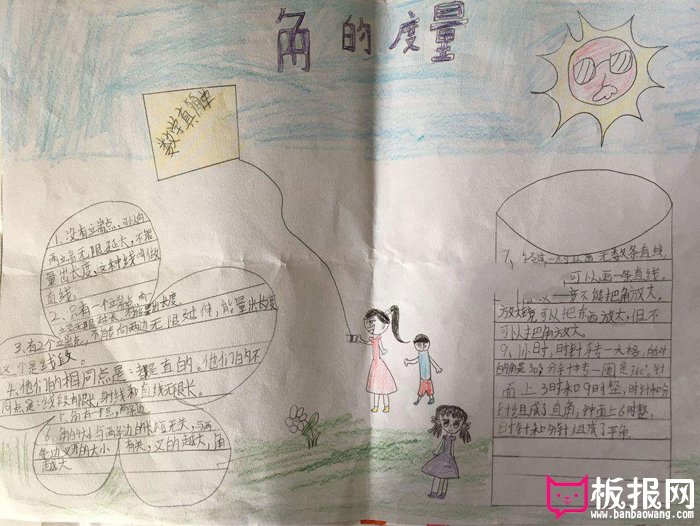 角的度量
数学真简单
1、没有端点,可以向
两边无限延长,不能
量出长度,这种线叫做
直线。
2、只有一个端点,
无限延长
长度。
3、有2个端点,不能向两边无限延伸,能量出长度
个是线段。
4、他们的相同点是:都是直的。他们的不
同点是:线段有限长,射线和直线无限长。
6、角的大小与两条边的长短无关,与两
条边叉开的大小有关,叉的越大,角
越大
7、经过一点可以画无数条直线,
可以画一条直线。
不能把角放大。
放大镜可以把东西放大,但不
可以把角放大。
9、1小时,时针转一大格,
的角是30°分针转一圈是360°,钟
面上3时和9时整,时针和分
针组成了直角,钟面上6时整,
时针和分针组成了平角。
板报网
www.banbaowang.com